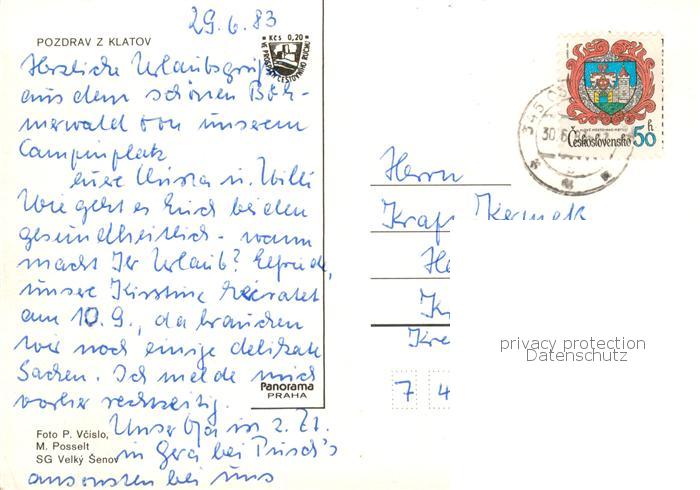 29.6.83
POZDRAV Z KLATOV
Kčs 0,20
Herzliche Urlaubsgrüße
aus dem schönen Böh-
merwald von unserem
Campinplatz
eure Christa u. Willi
Wie geht es Euch beiden
gesundheitlich - wann
macht Ihr Urlaub? Elfriede,
unsere Kirstine heiratet
am 10.9., da brauchen
wir noch einige delikate
Sachen. Ich melde mich
vorher rechtzeitig.
Unser Opa in z. Zt.
in Gera bei
ansonsten bei uns
Panorama
PRAHA
Foto P. Včislo,
M. Posselt
SG Velký Šenov
Československo 50 h
30.6.
Herrn
7 4
privacy protection
Datenschutz